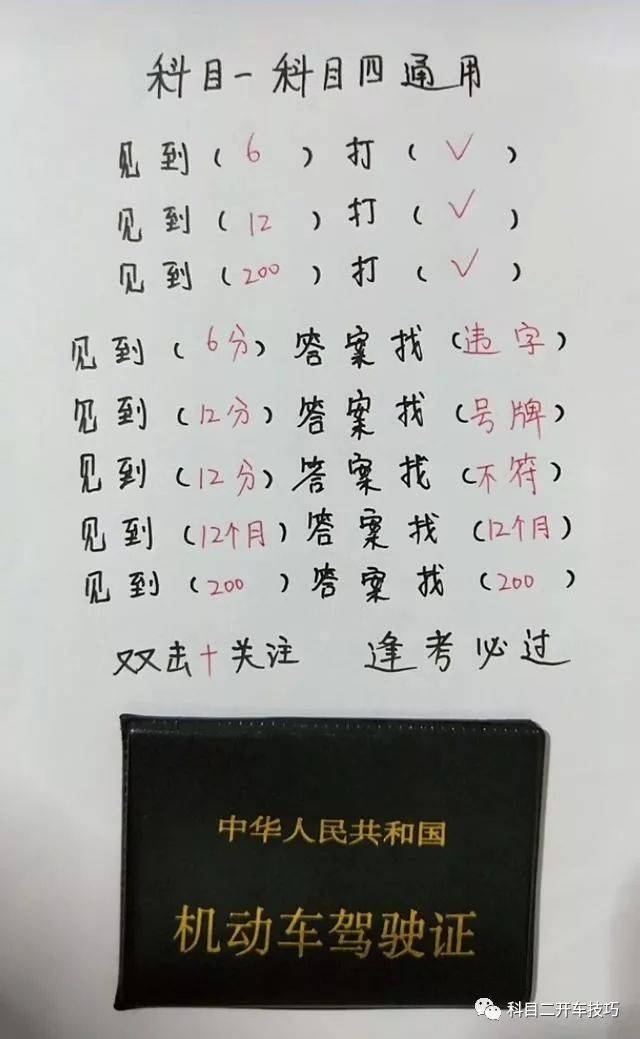 科目一科目四通用
见到(6)打(✓)
见到(12)打(✓)
见到(200)打(✓)
见到(6分)答案找(违字)
见到(12分)答案找(号牌)
见到(12分)答案找(不符)
见到(12个月)答案找(12个月)
见到(200)答案找(200)
双击+关注 逢考必过
中华人民共和国
机动车驾驶证
科目二开车技巧